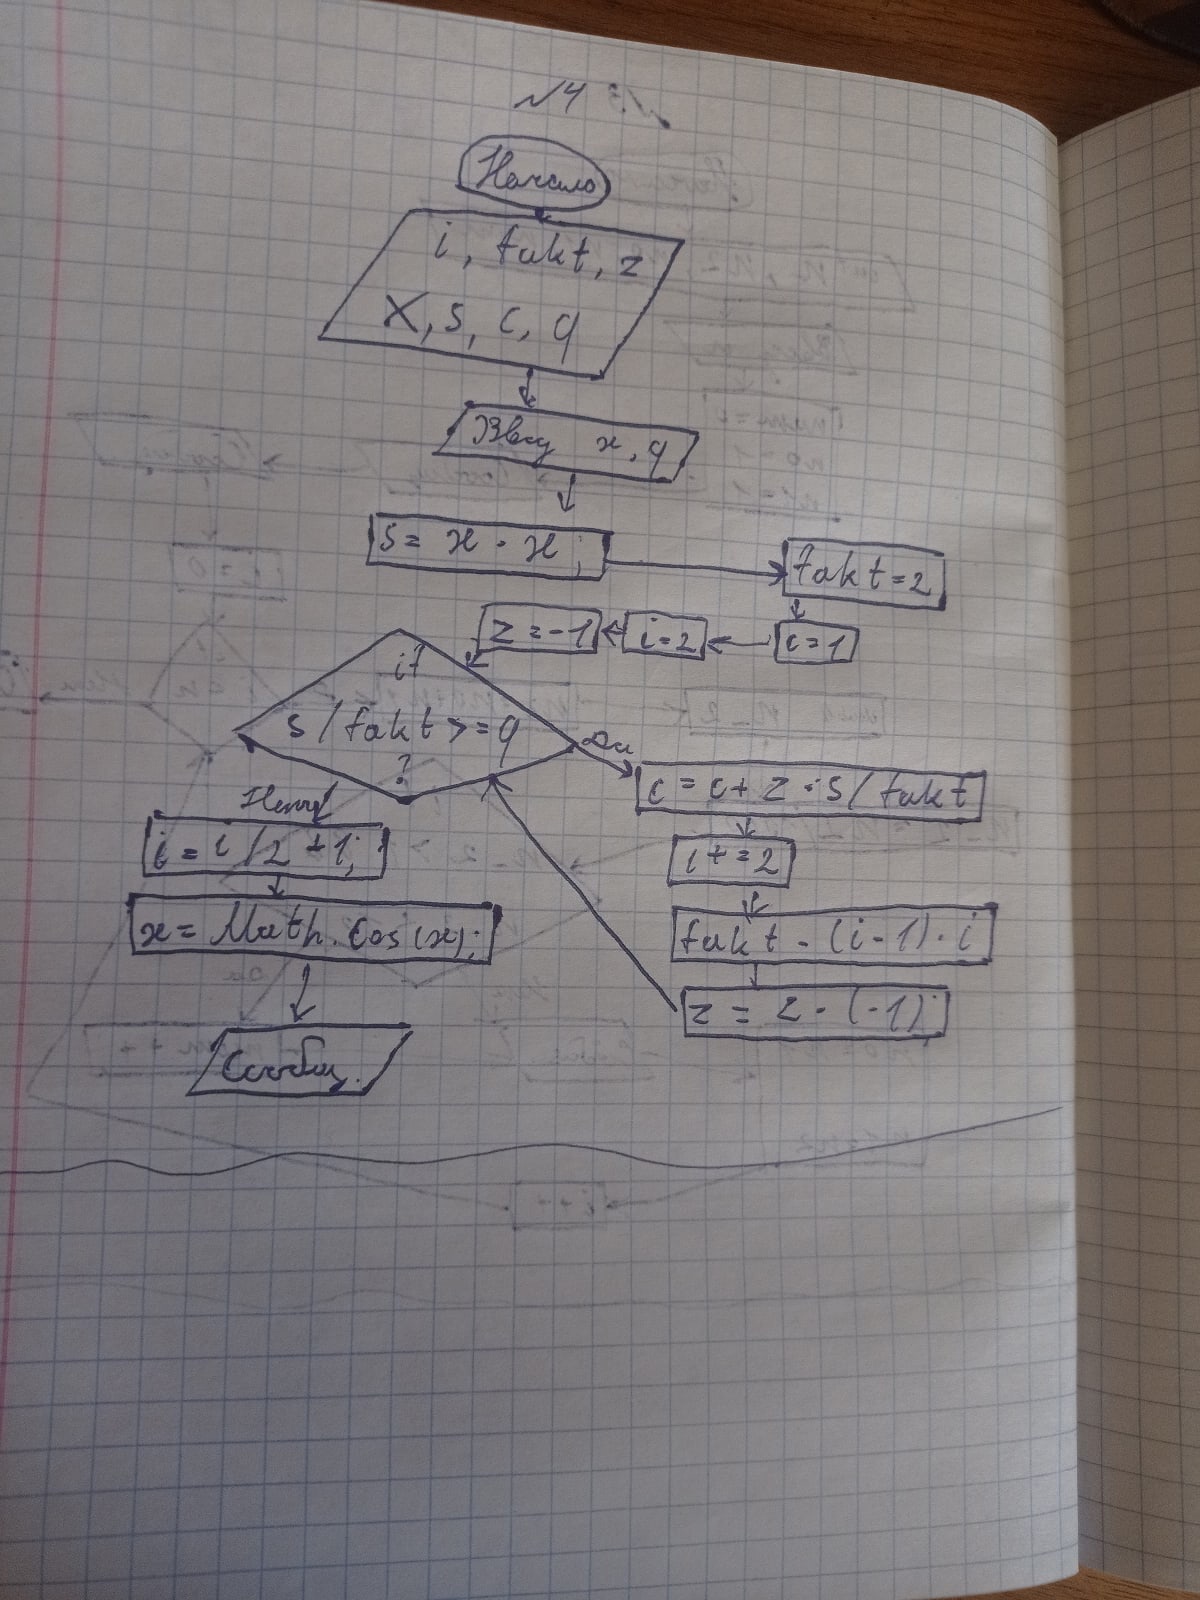 №4
Начало
i, fakt, z
X, s, c, q
Ввод x, q
s = x · x ;
fakt = 2
c = 1
i = 2
z = -1
if
s / fakt >= q
?
Да
c = c + z · s / fakt
i + = 2
fakt - (i - 1) · i
z = z · (-1)
i = i / 2 + 1;
x = Math. Cos (x);
Сообщ.